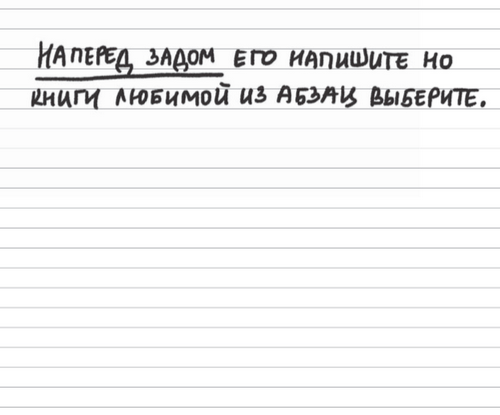 Наперед задом его напишите но
книги любимой из абзац выберите.